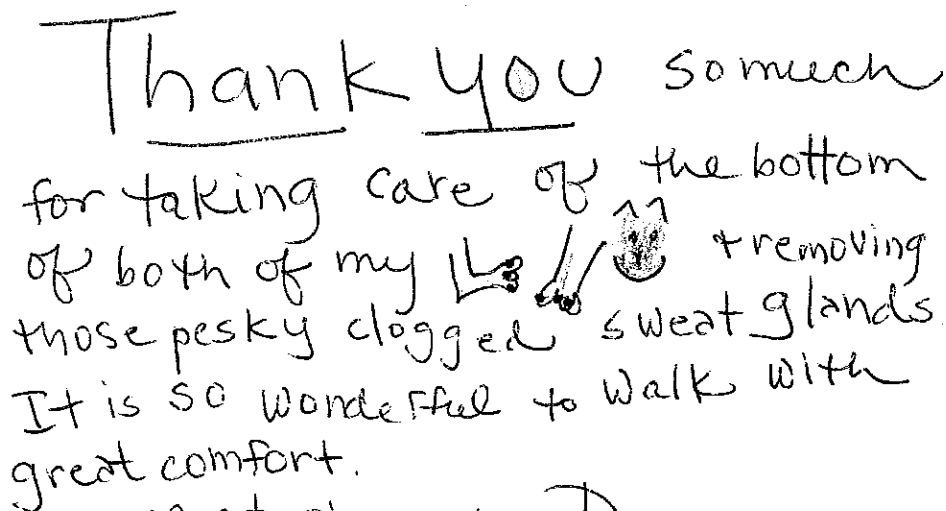 Thank you so much
for taking care of the bottom
of both of my + removing
those pesky clogged sweat glands.
It is so wonderful to walk with
great comfort.